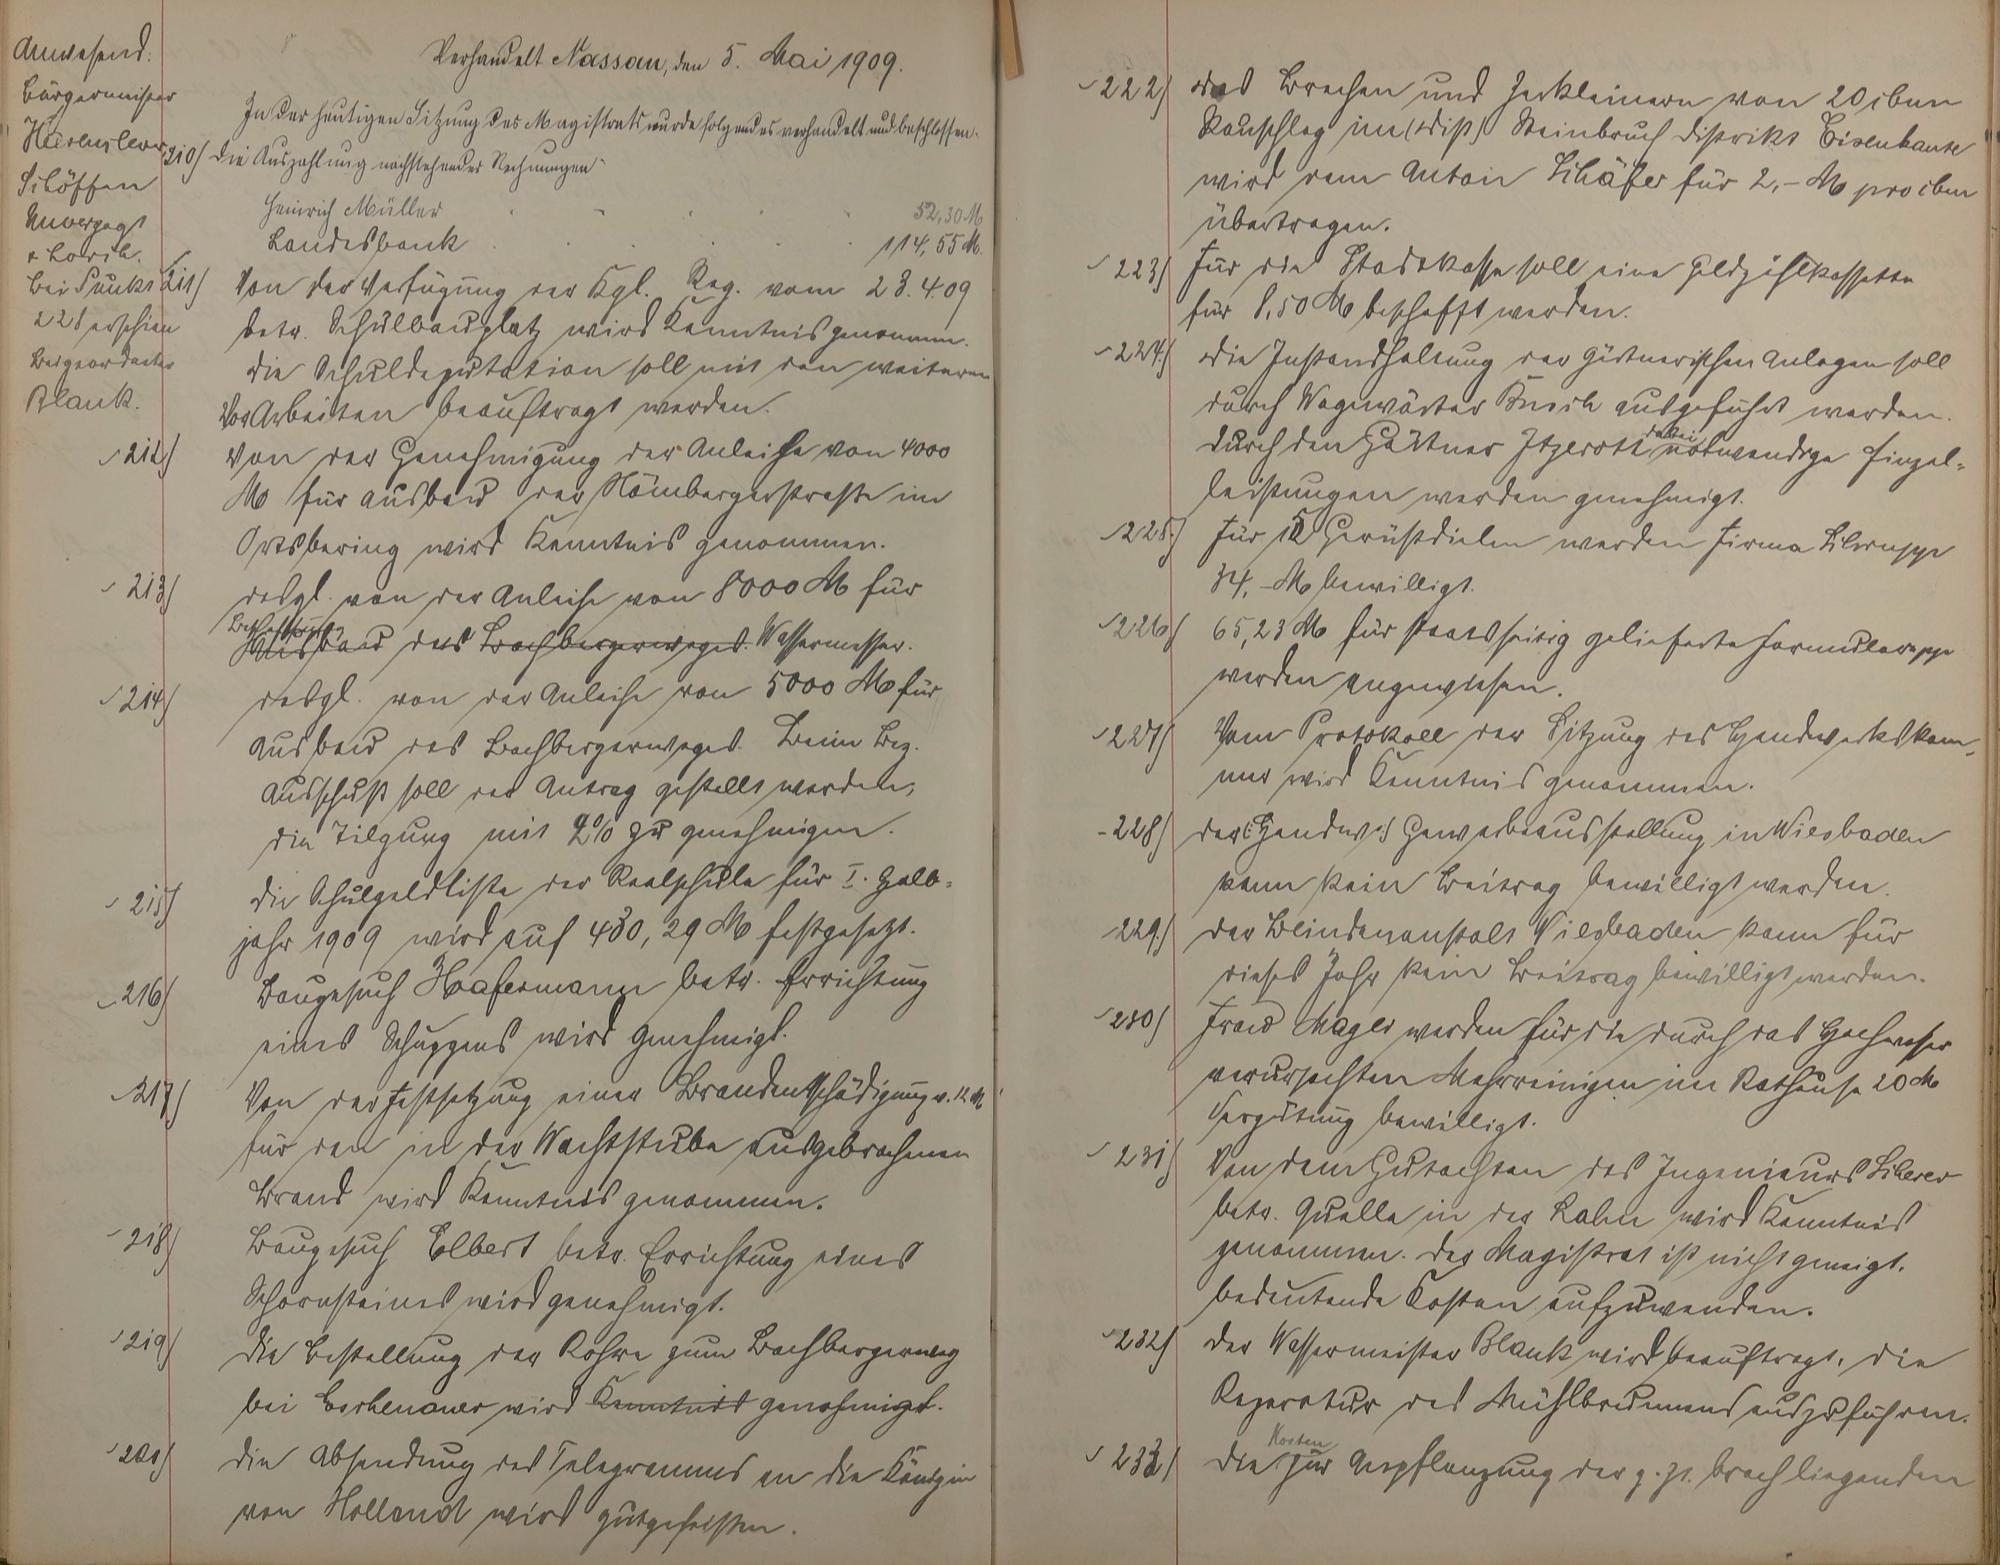 Anwesend:
Bürgermeister
Hasenclever
Schöffen
Unverzagt
& Lorch.
Bei Punkt
228 erschien
Beigeordneter
Blank.
Verhandelt Nassau, den 5. Mai 1909.
In der heutigen Sitzung des Magistrats wurde folgendes verhandelt und beschlossen.
210) Die Auszahlung nachstehender Rechnungen
Heinrich Müller 52,30 M
Landesbank 114,55 M.
211) Von der Verfügung der Kgl. Reg. vom 23.4.09
betr. Schulbauplatz wird Kenntnis genommen.
Die Schuldeputation soll mit den weiteren
Vorarbeiten beauftragt werden.
212) Von der Genehmigung der Anleihe von 4000
M für Ausbau der Hömbergerstraße im
Ortsbering wird Kenntnis genommen.
213) desgl. von der Anleihe von 8000 M für
Beschaffung
Ausbau des Bachbergerweges. Wassermesser.
214) desgl. von der Anleihe von 5000 M für
Ausbau des Bachbergerweges. Beim Bez.
Ausschuß soll der Antrag gestellt werden,
die Tilgung mit 2% zu genehmigen.
215) Die Schulgeldliste der Realschule für I. Halb-
jahr 1909 wird auf 430,29 M festgesetzt.
216) Baugesuch Hafermann betr. Errichtung
eines Schuppens wird genehmigt.
217) Von der Festsetzung einer Brandentschädigung v. 12 M
für den in der Wachtstube ausgebrochenen
Brand wird Kenntnis genommen.
218) Baugesuch Elbert betr. Errichtung eines
Schornsteines wird genehmigt.
219) Die Bestellung der Rohre zum Bachbergerweg
bei wird Kenntnis genehmigt.
220) Die Absendung des Telegramms an die Königin
von Holland wird gutgeheißen.
222) Das Brechen und Zerkleinern von 20 cbm
Rauschlag im (Dist) Steinbruch Distrikt Eisenhaute
wird dem Anton Schäfer für 2,- M pro cbm
übertragen.
223) Für die Stadtkasse soll eine Geldzählkassette
für 8,50 M beschafft werden.
224.) Die Instandhaltung der gärtnerischen Anlagen soll
durch Wegewärter ausgeführt werden.
dabei
Durch den Gärtner Itzerott notwendige Einzel-
leistungen werden genehmigt.
225.) Für 15 Gerüstdielen werden Firma
34,- M bewilligt.
226) 65,23 M für staatsseitig gelieferte Formulare pp
werden angewiesen.
227) Vom Protokoll der Sitzung der Handwerkskam-
mer wird Kenntnis genommen.
228) Der (Handw.) Gewerbeausstellung in Wiesbaden
kann kein Beitrag bewilligt werden.
229.) Der Blindenanstalt Wiesbaden kann für
dieses Jahr kein Beitrag bewilligt werden.
230) Frau Mager werden für die durch das Hochwasser
verursachten Mehrreinigen im Rathause 20 M
Vergütung bewilligt.
231) Von dem Gutachten des Ingenieurs Scherer
betr. Quelle in der Lahn wird Kenntnis
genommen. Der Magistrat ist nicht geneigt,
bedeutende Kosten aufzuwenden.
232) Der Wassermeister Blank wird beauftragt, die
Reparatur des Mühlbrunnens auszuführen.
Kosten
233) Die zur Anpflanzung der z. Zt. brach liegenden